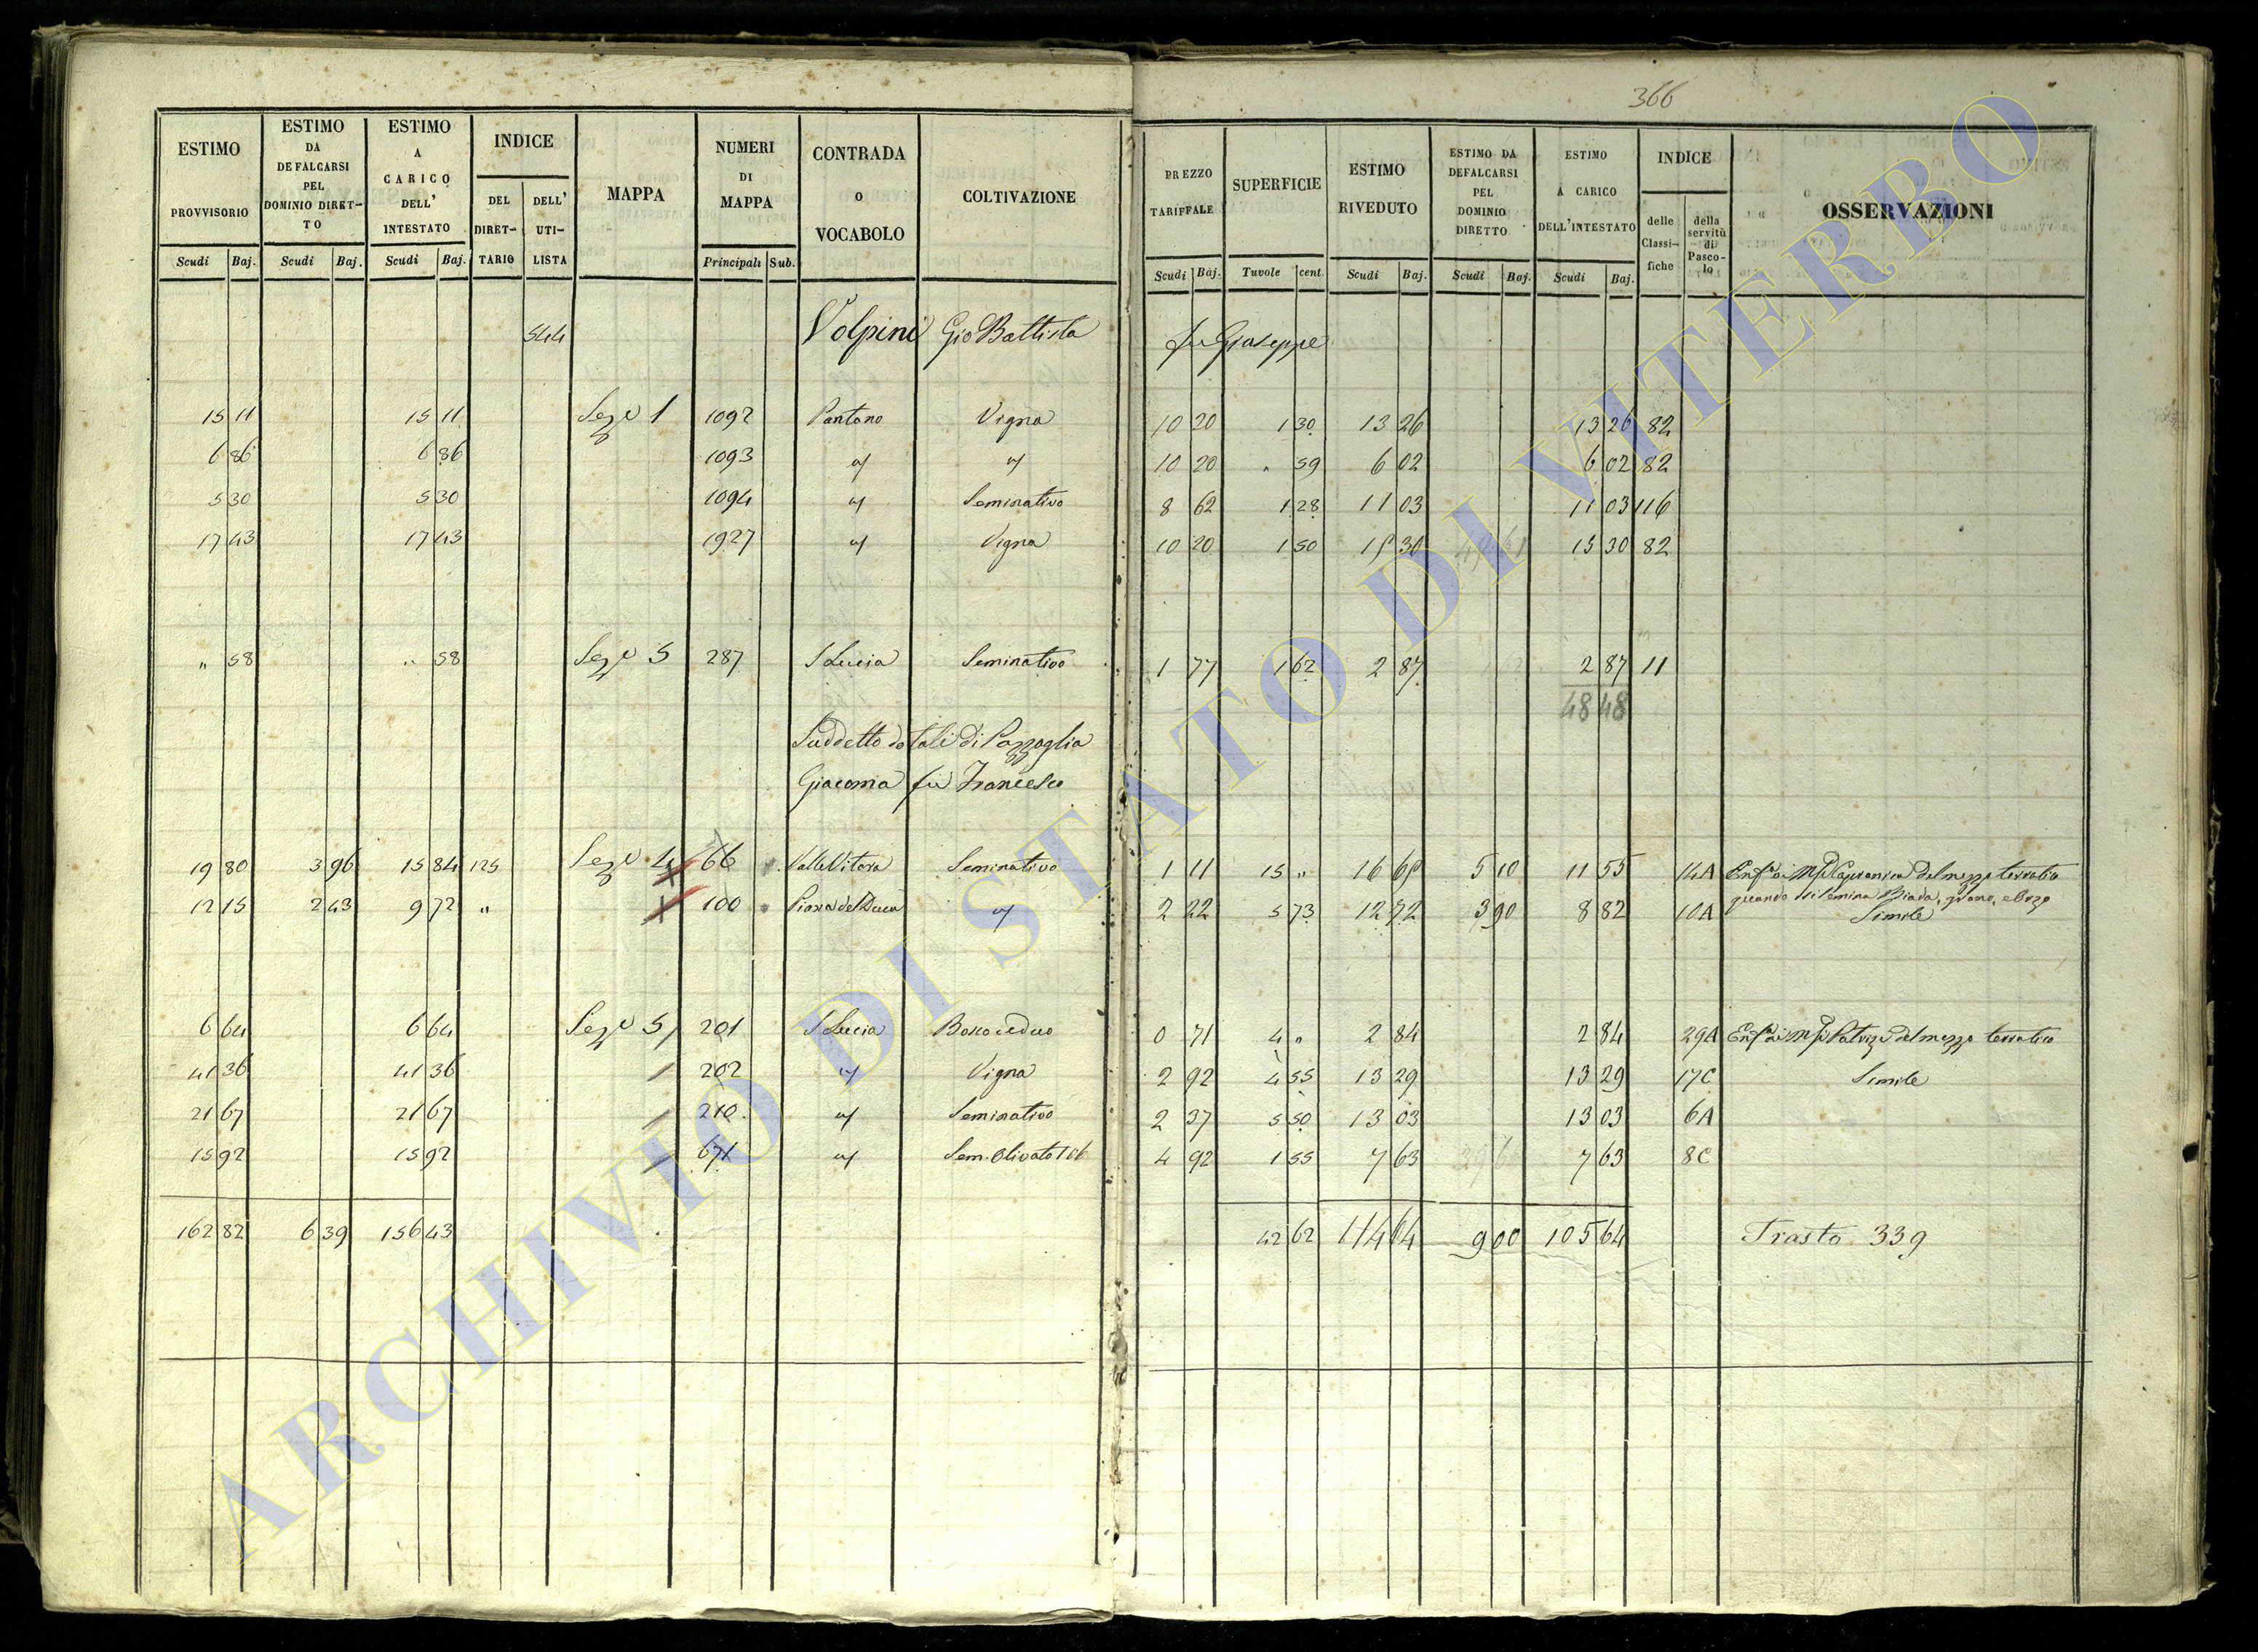 366
ESTIMO PROVVISORIO Scudi Baj.
ESTIMO DA DEFALCARSI PEL DOMINIO DIRET-TO Scudi Baj.
ESTIMO A CARICO DELL' INTESTATO Scudi Baj.
INDICE DEL DIRET-TARIO DELL' UTI-LISTA
MAPPA
NUMERI DI MAPPA Principali Sub.
CONTRADA o VOCABOLO
COLTIVAZIONE
PREZZO TARIFFALE Scudi Baj.
SUPERFICIE Tavole cent.
ESTIMO RIVEDUTO Scudi Baj.
ESTIMO DA DEFALCARSI PEL DOMINIO DIRETTO Scudi Baj.
ESTIMO A CARICO DELL'INTESTATO Scudi Baj.
INDICE delle Classi-fiche della servitù di Pasco-lo
OSSERVAZIONI
544 Volpini Gio Battista fu Giuseppe
15 11 15 11 Sez.e 1 1092 Pantano Vigna 10 20 1 30 13 26 13 26 82
6 86 6 86 1093 " " 10 20 " 59 6 02 6 02 82
5 30 5 30 1094 " Seminativo 8 62 1 28 11 03 11 03 116
17 43 17 43 1927 " Vigna 10 20 1 50 15 30 15 30 82
" 58 " 58 Sez.e 5 287 S Lucia Seminativo 1 77 1 62 2 87 2 87 11
48 48
Suddetto dotali di Pazzaglia
Giacoma fu Francesco
19 80 3 96 15 84 125 Sez.e 4 66 Valle Vitora Seminativo 1 11 15 " 16 65 5 10 11 55 14A del mezzo terratico
quando si semina Biada, grano, ed orzo
12 15 2 43 9 72 " 100 Piana del Duca " 2 22 5 73 12 72 3 90 8 82 10A Simile
6 64 6 64 Sez.e 5 201 S Lucia Bosco ceduo 0 71 4 " 2 84 2 84 29A Patrizi del mezzo terratico
41 36 41 36 202 " Vigna 2 92 4 55 13 29 13 29 17C Simile
21 67 21 67 210 " Seminativo 2 37 5 50 13 03 13 03 6A
15 92 15 92 671 " Sem. Olivato 4 92 1 55 7 63 7 63 8C
162 82 6 39 156 43 42 62 114 64 9 00 105 64 Trasto 339
ARCHIVIO DI STATO DI VITERBO